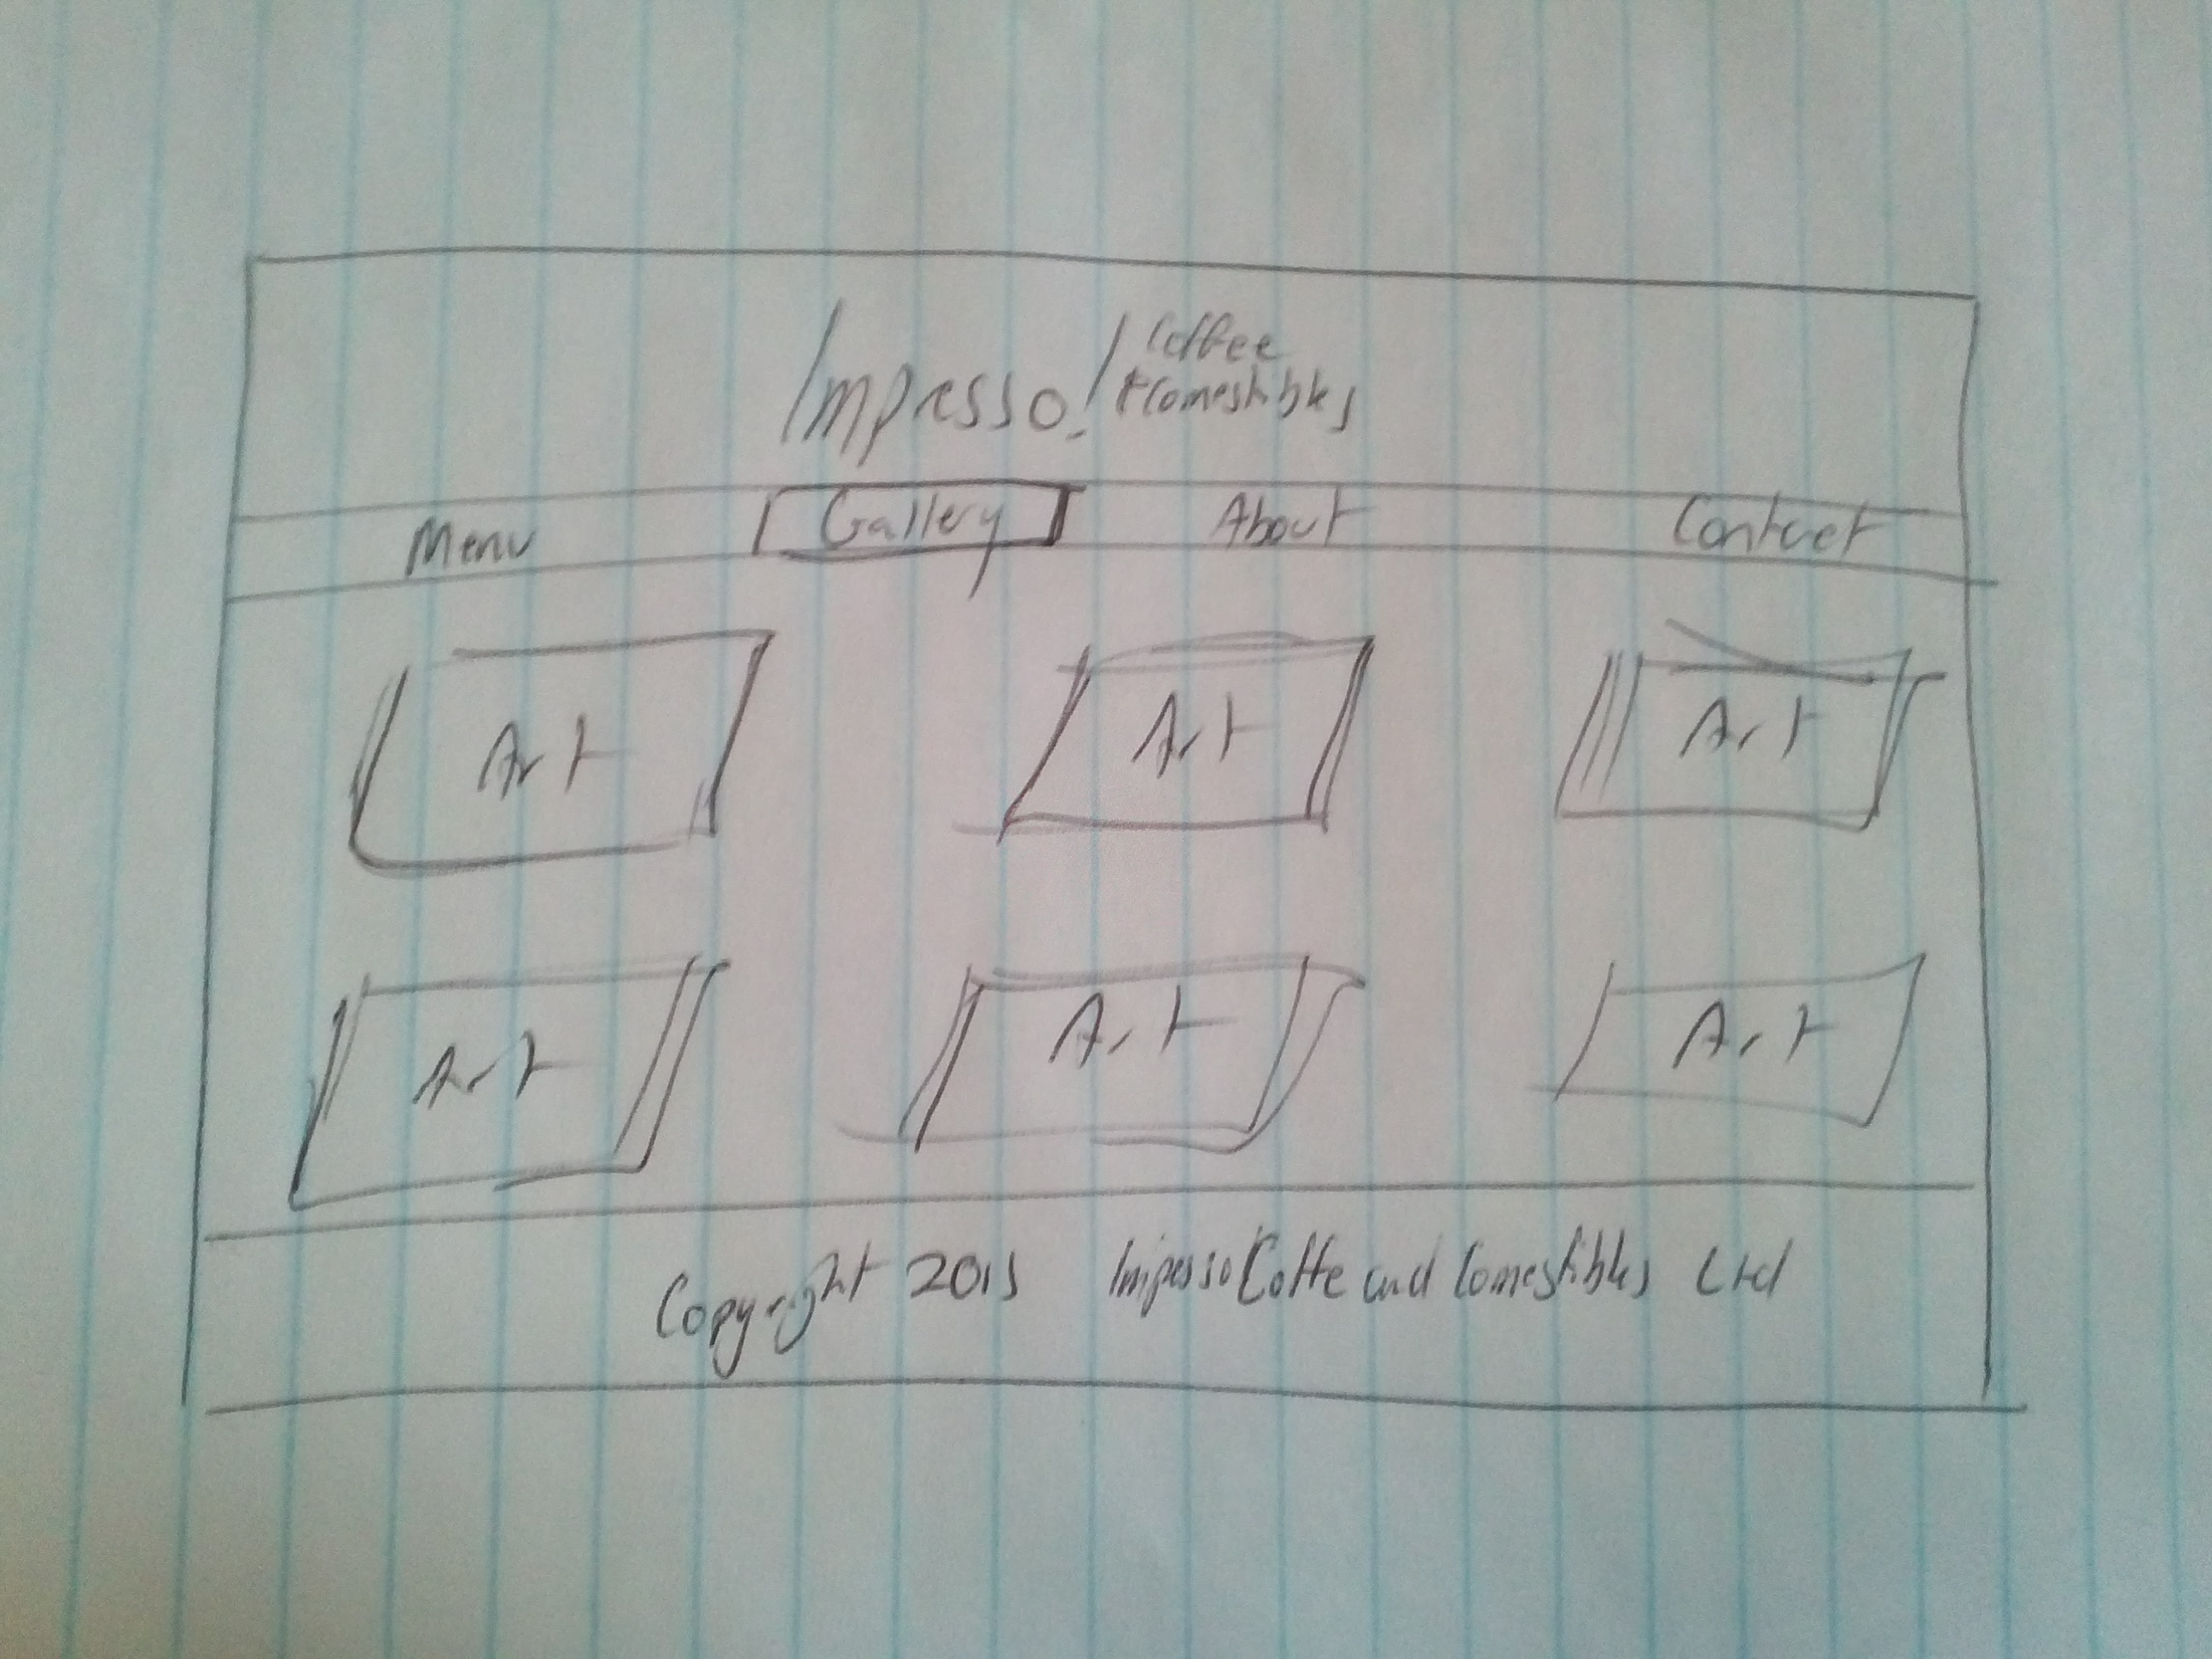 Impresso!
Coffee
+Comestibles
Menu Gallery About Contact
Art Art Art
Art Art Art
Copyright 2015 Impesso Coffe and Comestibles Ltd